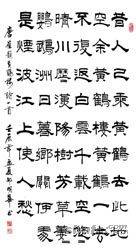 昔人已乘黃鶴去此
地空餘黃鶴樓黃鶴
一去不復返白雲千
載空悠悠晴川歷歷
漢陽樹芳草萋萋鸚
鵡洲日暮鄉關何處
是煙波江上使人愁
唐崔顥黃鶴樓詩一首
壬辰年書